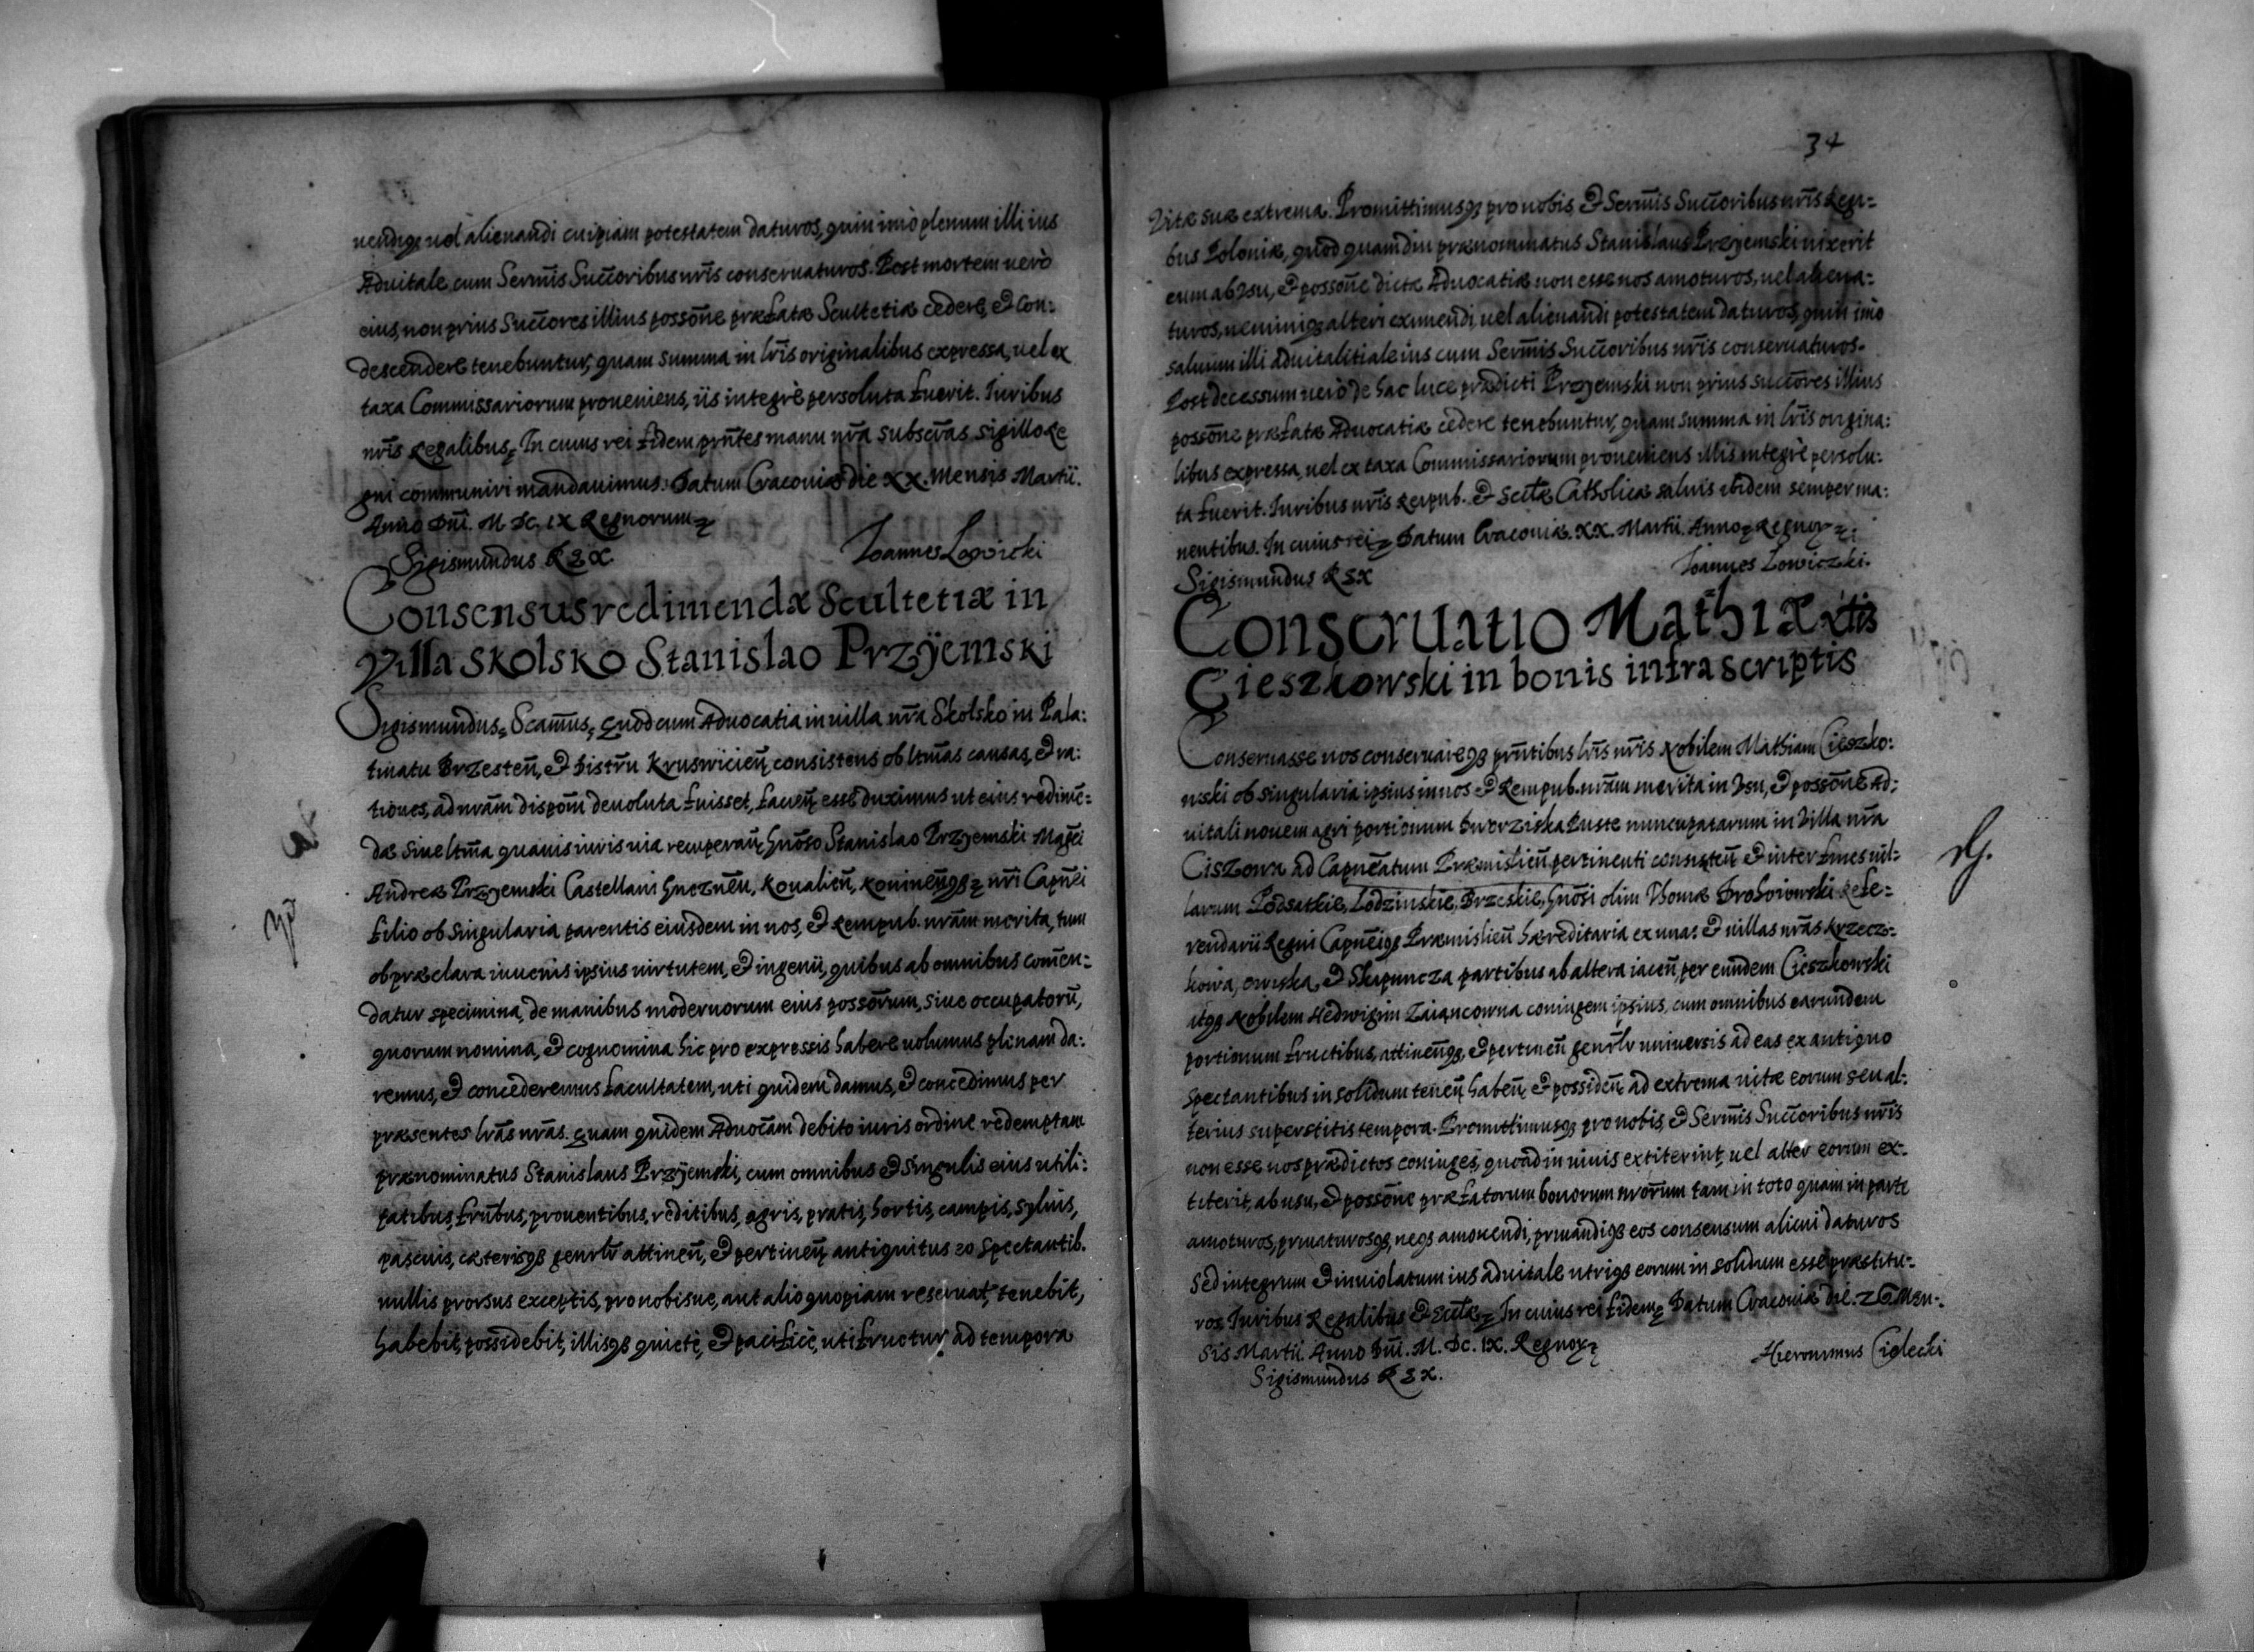 uendiq3 uel alienandi cuipiam potestatem daturos, quin imò plenum illi ius
Aduitale cum Serm̃is Succ̃oribus nr̃is conseruaturos. Post mortem uerò
eius, non prius Succ̃ores illius possõne præfatæ Scultetiæ cedere, & con:
descendere tenebuntur, quam summa in lr̃is originalibus expressa, uel ex
taxa Commissariorum proueniens, iis integrè persoluta fuerit. Iuribus
nr̃is Regalibus. In cuius rei fidem prñtes manu nr̃a subscr̃as sigillo Re
gni communiri mandauimus. Datum Cracouiæ die XX. Mensis Martii.
Anno Dñi. M. DC. IX Regnorum
Sigismundus REX
Ioannes Lowicki
Consensus redimendæ Scultetiæ in
Villa Skolsko Stanislao Przÿemski
Sigismundus, Scam̃us, Quod cum Aduocatia in uilla nr̃a Skolsko in Pala:
tinatu Brzesteñ, & Distr̃u Kruswicieñ consistens ob ltm̃as causas, & ra:
tiones, ad nr̃am dispom̃ deuoluta fuisset, facieñ esse duximus ut eius redimẽ=
dæ siue ltm̃a quauis iuris uia recuperañ Gnõso Stanislao Przyemski Magci
Andreæ Przyemski Castellani Gneznẽn, Koualieñ, Konineñq3 nr̃i Capñei
filio ob singularia parentis eiusdem in nos, & Rempub. nr̃am merita, tum
ob præclara iuuenis ipsius uirtutem, & ingenii, quibus ab omnibus com̃en=
datur specimina, de manibus modernorum eius possõrum, siue occupatorũ,
quorum nomina, & cognomina hic pro expressis habere uolumus plenam da:
remus, & concederemus facultatem, uti quidem damus, & concedimus per
præsentes lr̃as nr̃as. Quam quidem Aduocãm debito iuris ordine redemptam
prænominatus Stanislaus Przÿemski, cum omnibus & Singulis eius utili:
tatibus, frũbus, prouentibus, reditibus, agris, pratis, hortis, campis, Syluis,
pascuis, cæterisq3 genr̃lr attineñ, & pertineñ antiquitus eo spectantib.
nullis prorsus exceptis, pro nobisue, aut alio quopiam reseruat, tenebit,
habebit, possidebit, illisq3 quietè, & pacificè, uti fruetur ad tempora
34
Vitæ suæ extrema. Promittimusq3 pro nobis, & Serm̃is Succ̃oribus nr̃is Regi=
bus Poloniæ, quod quamdiu prænominatus Stanislaus Przyemski uixerit
eum ab Vsu, & possõne dictæ Aduocatiæ non esse nos amoturos, uel aliena=
turos, neminiq3 alteri eximendi, uel alienandi potestatem daturos, quin imò
saluum illi Aduitalitiale ius cum Serm̃is Succ̃oribus nr̃is conseruaturos.
Post decessum uerò de hac luce prædicti Przyemski non prius succ̃ores illius
possõne præfatæ Aduocatiæ cedere tenebuntur, quam summa in lr̃is origina:
libus expressa, uel ex taxa Commissariorum proueniens illis integrè persolu:
ta fuerit. Iuribus nr̃is Reipub. & Eccl̃æ Catholicæ saluis ibidem semper ma:
nentibus. In cuius rei Datum Cracouiæ. XX. Martii Anno Regnor
Sigismundus REX
Ioannes Lowiczki.
Conseruatio Mathiæ xtis
Cieszkowski in bonis infrascriptis
Conseruasse nos conseruareq3 prñtibus lr̃is nr̃is Nobilem Mathiam Cieszko:
wski ob singularia ipsius in nos & Rempub. nr̃am merita in Vsu, & possõne Ad:
uitali nouem agri portionum Dworziska Puste nuncupatarum in Villa nr̃a
Ciszowa ad Capnẽatum Præmislieñ pertinenti consisteñ & inter fines uil=
larum Podsatkie, Lodzinskie, Brzeskie, Gnõsi olim Thomæ Drohoiowski Refe=
rendarii Regni Capnẽiq3 Præmislieñ hæreditaria ex una: & uillas nr̃as Krzecz=
kowa, & Skupuncza partibus ab altera iaceñ, per eundem Cieszkowski
atq3 Nobilem Hedwigim Zaiancowna coniugem ipsius, cum omnibus earundem
portionum fructibus, attineñq3, & pertineñ genr̃lr uniuersis ad eas ex antiquo
spectantibus in solidum teneñ habeñ & possideñ ad extrema uitæ eorum seu al:
terius superstitis tempora. Promittimusq3 pro nobis, & Serm̃is Succ̃oribus nr̃is
non esse nos prædictos coniuges, quoad in uiuis extiterint, uel alter eorum ex=
titerit, ab usu, & possõne præfatorum bonorum nr̃orum tam in toto quam in parte
amoturos, priuaturosq3, neq3 amouendi, priuandiq3 eos consensum alicui daturos
Sed integrum & inuiolatum ius aduitale utriq3 eorum in solidum esse præstitu=
ros. Iuribus Regalibus & Eccl̃æ In cuius rei fidem Datum Cracouiæ die. 26 Men-
sis Martii Anno Dñi. M. DC. IX. Regnor
Sigismundus REX.
Hieronimus Cielecki